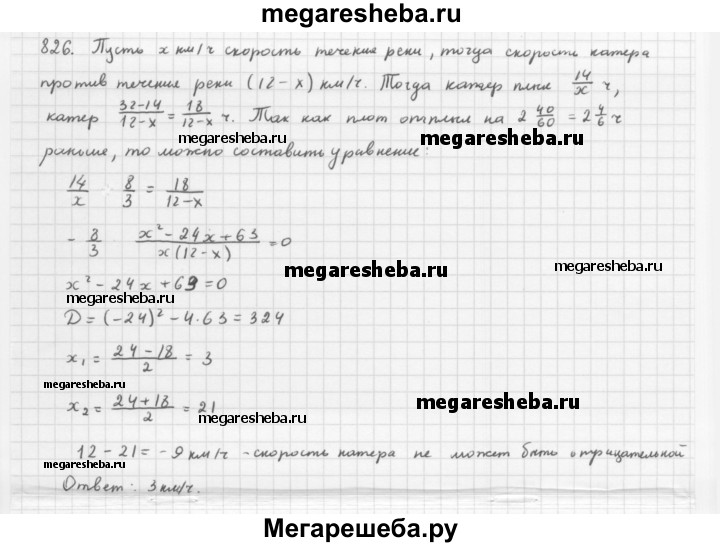 megaresheba.ru
826. Пусть x км/ч скорость течения реки, тогда скорость катера
против течения реки (12-x) км/ч. Тогда катер плыл 14/x ч,
катер 32-14/12-x = 18/12-x ч. Так как плот отплыл на 2 40/60 = 2 4/6 ч
megaresheba.ru
megaresheba.ru
раньше, то можно составить уравнение:
14/x 8/3 = 18/12-x
megaresheba.ru
- 8/3 x²-24x+63/x(12-x) = 0
megaresheba.ru
megaresheba.ru
x²-24x+63=0
megaresheba.ru
D=(-24)²-4·63=324
x₁ = 24-18/2 = 3
megaresheba.ru
x₂ = 24+18/2 = 21
megaresheba.ru
megaresheba.ru
12-21=-9 км/ч - скорость катера не может быть отрицательной
megaresheba.ru
Ответ: 3 км/ч.
Мегарешеба.ру